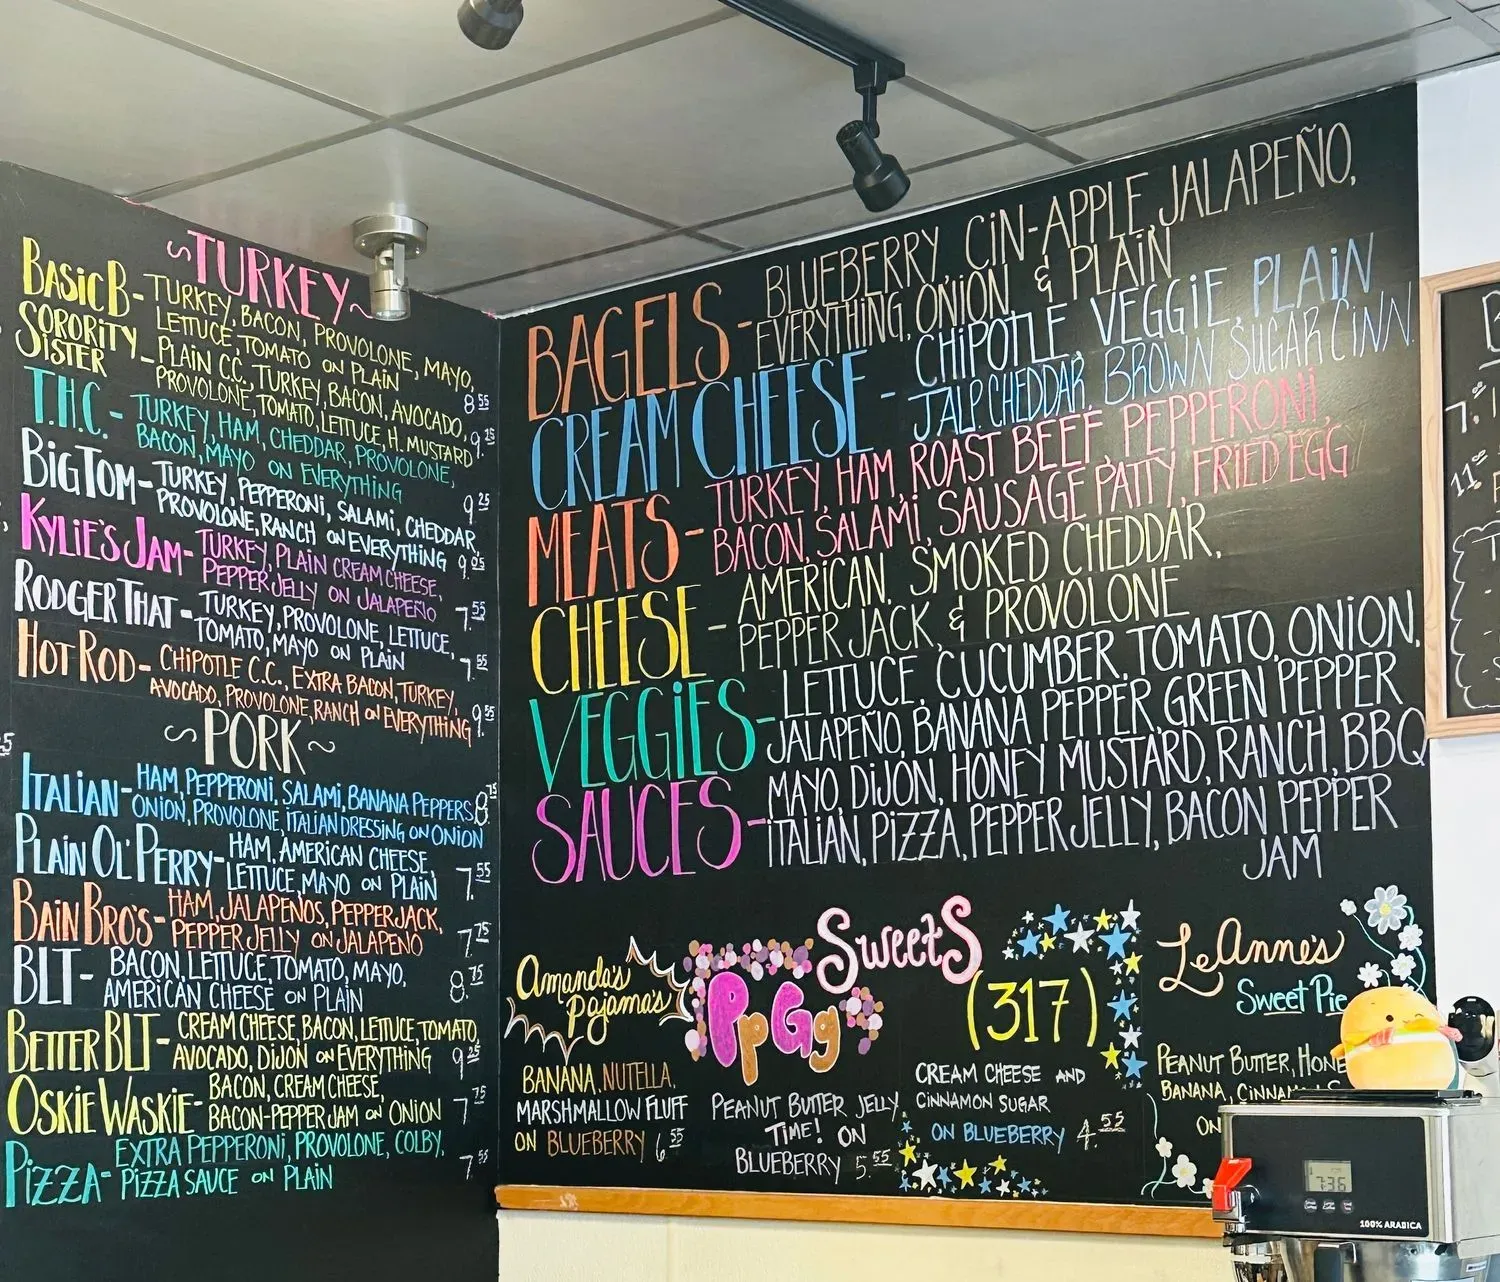 ~TURKEY~
BASIC B - TURKEY, BACON, PROVOLONE, MAYO,
LETTUCE, TOMATO ON PLAIN 8.55
SORORITY SISTER - PLAIN C.C., TURKEY, BACON, AVOCADO,
PROVOLONE, TOMATO, LETTUCE, H. MUSTARD 9.25
T.H.C. - TURKEY, HAM, CHEDDAR, PROVOLONE,
BACON, MAYO ON EVERYTHING 9.25
BIG TOM - TURKEY, PEPPERONI, SALAMI, CHEDDAR,
PROVOLONE, RANCH ON EVERYTHING
KYLIE'S JAM - TURKEY, PLAIN CREAM CHEESE,
PEPPER JELLY ON JALAPEÑO 7.55
RODGER THAT - TURKEY, PROVOLONE, LETTUCE,
TOMATO, MAYO ON PLAIN 7.55
HOT ROD - CHIPOTLE C.C., EXTRA BACON, TURKEY,
AVOCADO, PROVOLONE, RANCH ON EVERYTHING 9.55
~PORK~
ITALIAN - HAM, PEPPERONI, SALAMI, BANANA PEPPERS,
ONION, PROVOLONE, ITALIAN DRESSING ON ONION 8.75
PLAIN OL' PERRY - HAM, AMERICAN CHEESE,
LETTUCE, MAYO ON PLAIN 7.55
BAIN BRO'S - HAM, JALAPEÑOS, PEPPERJACK,
PEPPER JELLY ON JALAPEÑO 7.75
BLT - BACON, LETTUCE, TOMATO, MAYO,
AMERICAN CHEESE ON PLAIN 8.75
BETTER BLT - CREAM CHEESE, BACON, LETTUCE, TOMATO,
AVOCADO, DIJON ON EVERYTHING 9.25
OSKIE WASKIE - BACON, CREAM CHEESE,
BACON-PEPPER JAM ON ONION 7.75
PIZZA - EXTRA PEPPERONI, PROVOLONE, COLBY,
PIZZA SAUCE ON PLAIN 7.55
BAGELS - BLUEBERRY, CIN-APPLE, JALAPEÑO,
EVERYTHING, ONION, & PLAIN
CREAM CHEESE - CHIPOTLE, VEGGIE, PLAIN
JALP. CHEDDAR, BROWN SUGAR CINN.
MEATS - TURKEY, HAM, ROAST BEEF, PEPPERONI,
BACON, SALAMI, SAUSAGE PATTY, FRIED EGG
CHEESE - AMERICAN, SMOKED CHEDDAR,
PEPPER JACK, & PROVOLONE
VEGGIES - LETTUCE, CUCUMBER, TOMATO, ONION,
JALAPEÑO, BANANA PEPPER, GREEN PEPPER
SAUCES - MAYO, DIJON, HONEY MUSTARD, RANCH, BBQ
ITALIAN, PIZZA, PEPPER JELLY, BACON PEPPER
JAM
SWEETS
AMANDA'S
PAJAMA'S
BANANA, NUTELLA,
MARSHMALLOW FLUFF
ON BLUEBERRY 6.55
PPGG
PEANUT BUTTER JELLY
TIME! ON
BLUEBERRY 5.55
(317)
CREAM CHEESE AND
CINNAMON SUGAR
ON BLUEBERRY 4.55
LEANNE'S
SWEET PIE
PEANUT BUTTER,
BANANA,
ON
7:36
100% ARABICA